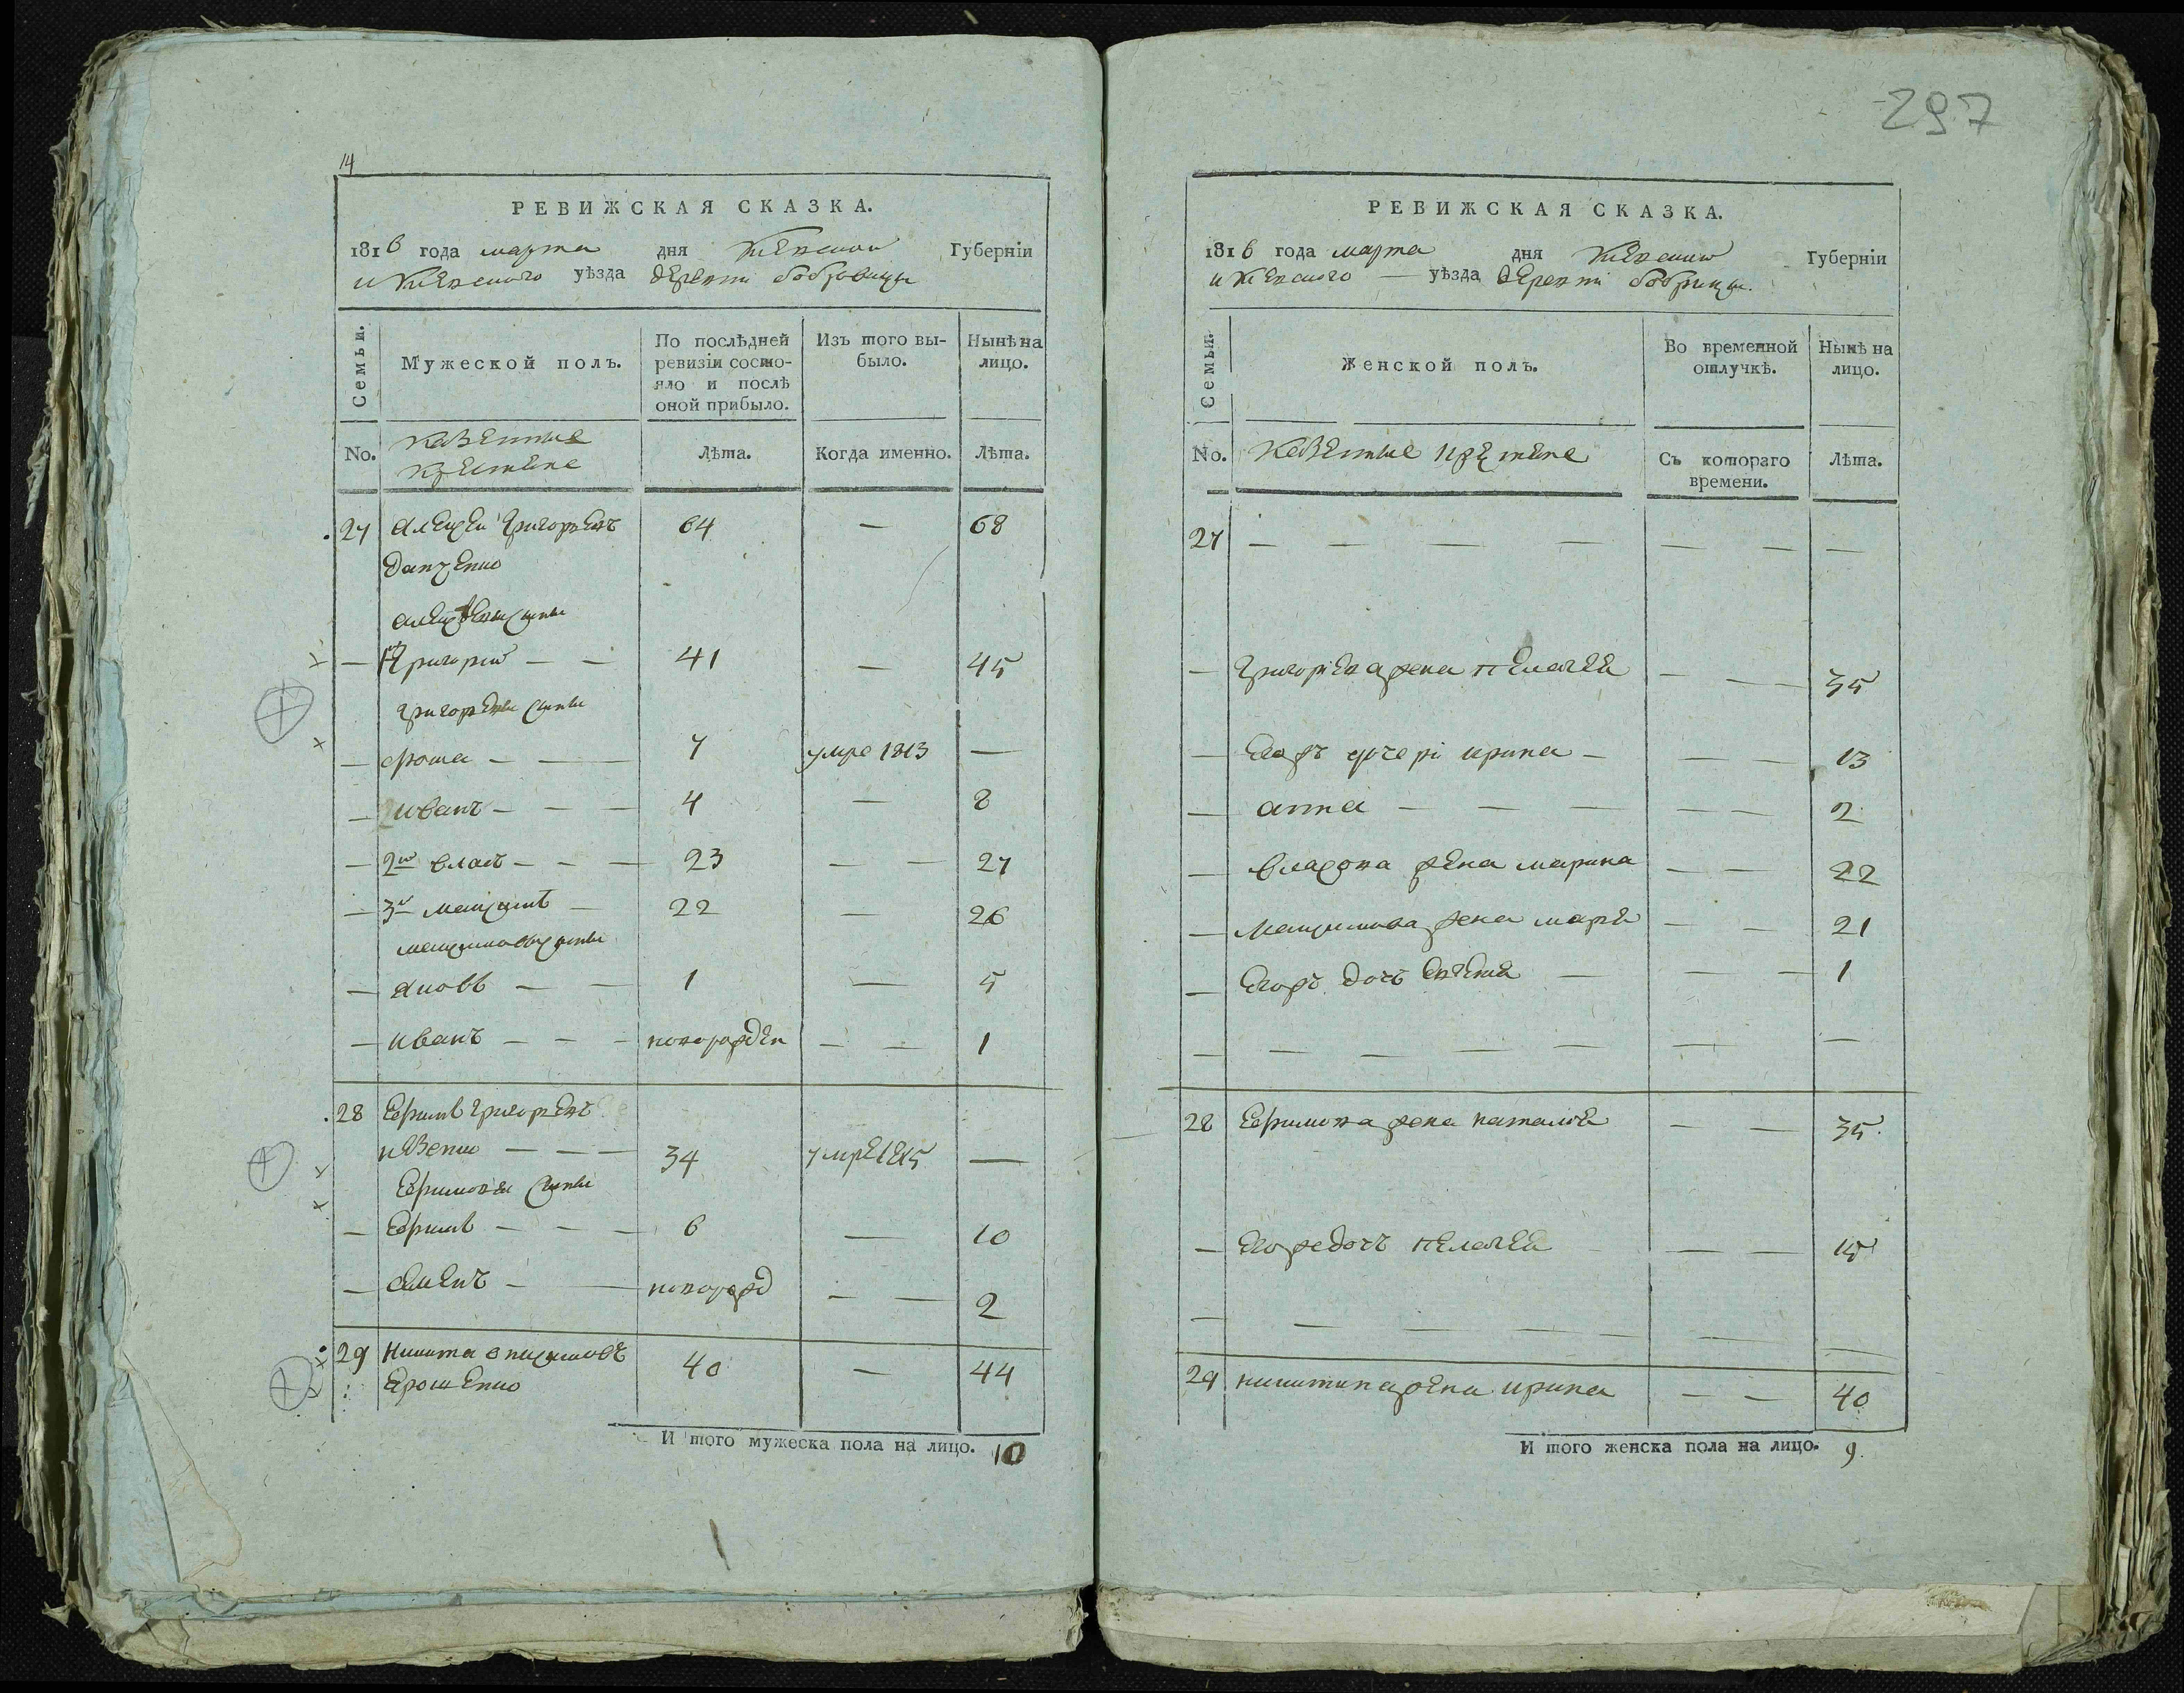 14
РЕВИЖСКАЯ СКАЗКА.
1816 года марта дня Киевской Губерніи
и Киевского уѣзда деревни бобровицы
Семьи.
Мужеской полъ.
По послѣдней ревизіи состо-
яло и послѣ
оной прибыло.
Изъ того вы-
было.
Нынѣ на
лицо.
No.
казенные
Лѣта.
Когда именно.
Лѣта.
27 алексей григорьевъ 64 — 68
данченко
алексеевы сыны
— 1й григорий — — 41 — 45
григорьевы сыны
— фома — — 7 умре 1813 —
— 2 иванъ — — — 4 — 8
— 2й власъ — — — 23 — — 27
— 3й максимъ — 22 — 26
максимовы сыны
— яковъ — — 1 — 5
— иванъ — — — новорожден — — 1
28 ефимъ григорьевъ
34 умре 1815 —
ефимовы сыны
— ефимъ — — — 6 — 10
— семенъ — — новорожд — — 2
29 Никита 40 — 44
ярошенко
И того мужеска пола на лицо. 10
297
РЕВИЖСКАЯ СКАЗКА.
1816 года марта дня Киевской Губерніи
и Киевского — уѣзда деревни бобрицы.
Семьи.
Женской полъ.
Во временной
отлучкѣ.
Нынѣ на
лицо.
No.
казенные
Съ котораго
времени.
Лѣта.
27 — — — — — — —
— григориева жена пелагея — — — 35
— ирина — — — — 13
— анна — — — — — 2
— власова жена марина — — 22
— максимова жена маря — — 21
— дочь евгения — — — 1
— — — — — — — —
28 ефимова жена наталия — — 35
— его же дочь пелагея — — 15
— — — — — — —
29 никитина жена ирина — — 40
И того женска пола на лицо. 9.